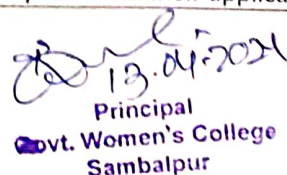 13.04.2021
Principal
Govt. Women's College
Sambalpur